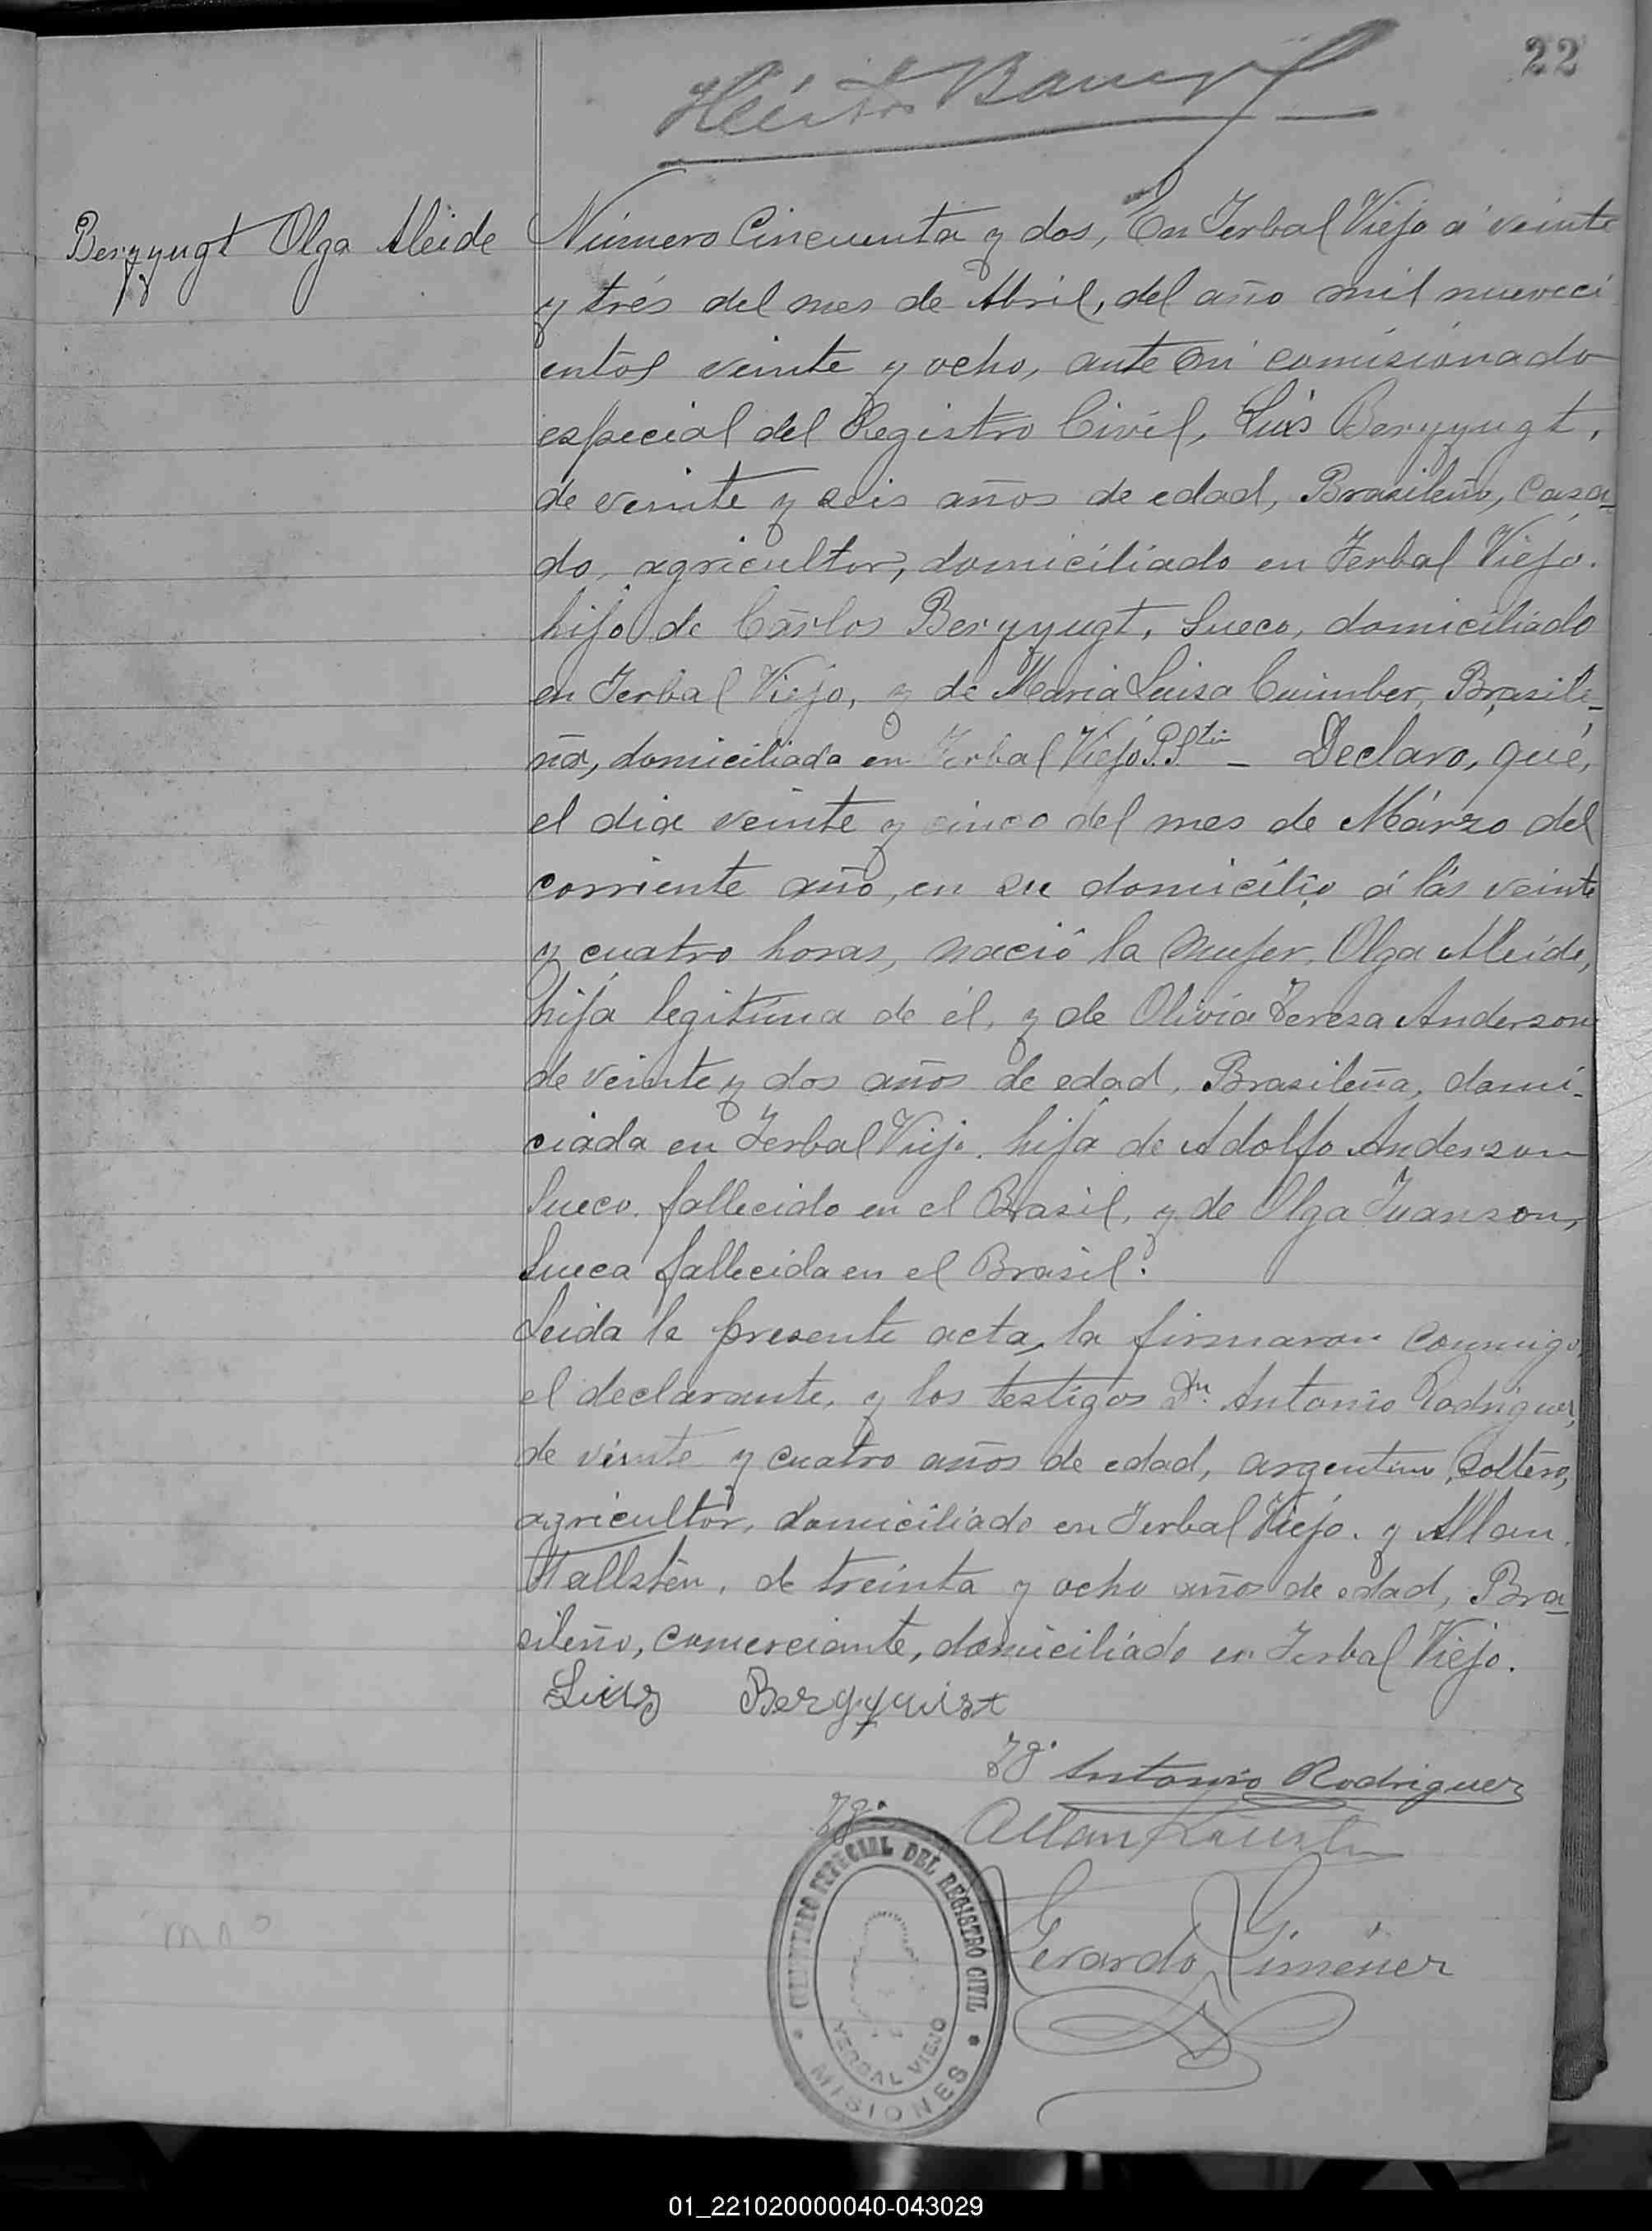 22
Héctor
Beryyugt Olga Aleide
Número Cincuenta y dos, En Yerbal Viejo á veinte
y trés del mes de Abril, del año mil nueveci
entos veinte y ocho, ante mi comisionado
especial del Registro Civil, Luis Beryyugt,
de veinte y seis años de edad, Brasileño, Casa-
do, agricultor, domiciliado en Yerbal Viejo.
hijo de Carlos Beryyugt, Sueco, domiciliado
en Yerbal Viejo, y de Maria Luisa Cuimber, Brasile-
ña, domiciliada en Yerbal Viejo. Declaro, qué,
el dia veinte y cinco del mes de Márzo del
corriente año, en su domicilio á lás veinte
y cuatro horas, nació la Mujer, Olga Aleide,
hija legitima de él, y de Olivia Teresa Anderson
de veinte y dos años de edad, Brasileña, domi-
ciada en Yerbal Viejo. hija de Adolfo Anderson
Sueco. fallecido en el Brasil, y de Olga Juanson,
Sueca fallecida en el Brasil.
Leida la presente acta, la firmaron conmigo,
el declarante, y los testigos Dn. Antonio Rodriguez,
de veinte y cuatro años de edad, argentino, Soltero,
agricultor, domiciliado en Yerbal Viejo. y Allan
Hallstén, de treinta y ocho años de edad, Bra-
sileño, comerciante, domiciliado en Yerbal Viejo.
Luiz Bergquist
Tgo. Antonio Rodriguez
Tgo. Allan
Gerardo Giménez
COMISIONADO ESPECIAL DEL REGISTRO CIVIL
YERBAL VIEJO
MISIONES
01_221020000040-043029